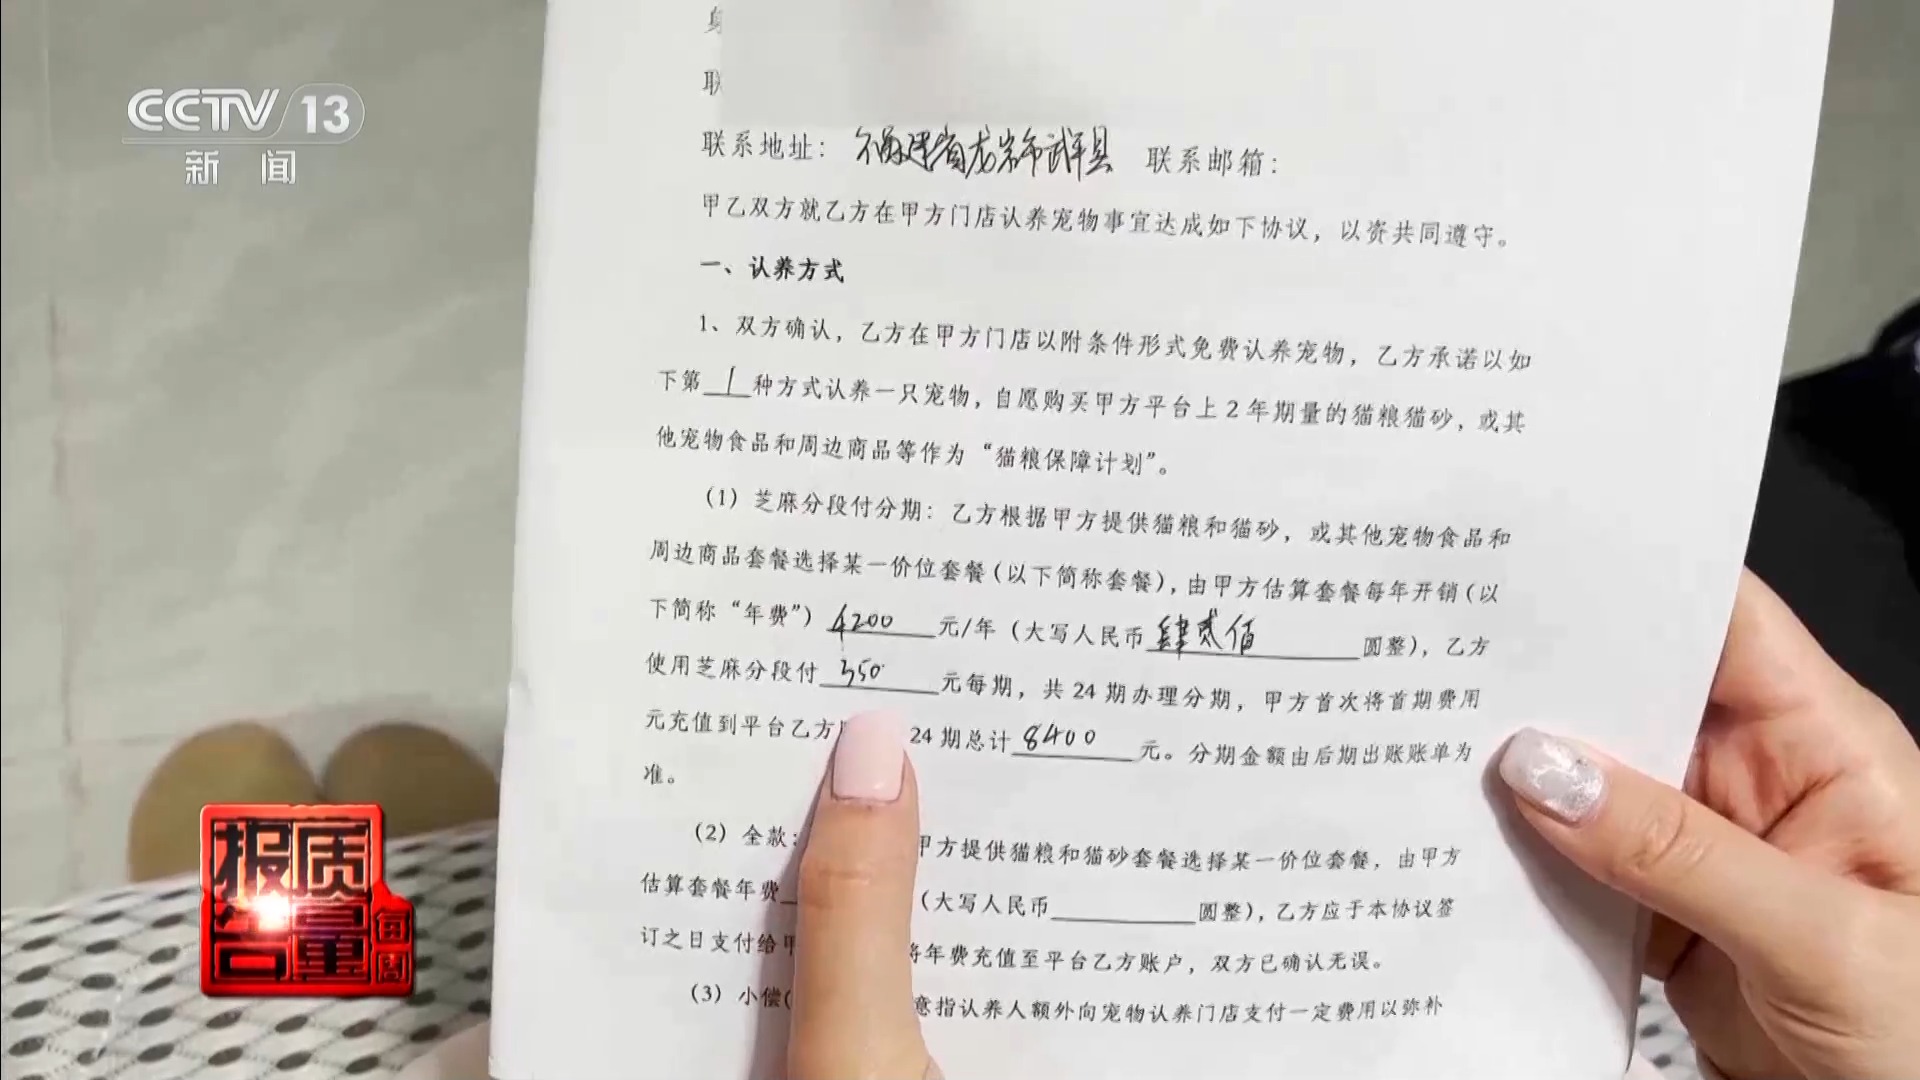 CCTV 13
新闻
联系地址：福建省龙岩市武平县 联系邮箱：
甲乙双方就乙方在甲方门店认养宠物事宜达成如下协议，以资共同遵守。
一、认养方式
1、双方确认，乙方在甲方门店以附条件形式免费认养宠物，乙方承诺以如
下第1种方式认养一只宠物，自愿购买甲方平台上2年期量的猫粮猫砂，或其
他宠物食品和周边商品等作为“猫粮保障计划”。
(1) 芝麻分段付分期：乙方根据甲方提供猫粮和猫砂，或其他宠物食品和
周边商品套餐选择某一价位套餐(以下简称套餐)，由甲方估算套餐每年开销(以
下简称“年费”) 4200 元/年 (大写人民币 肆贰佰 圆整)，乙方
使用芝麻分段付 350 元每期，共24期办理分期，甲方首次将首期费用
元充值到平台乙方 24期总计 8400 元。分期金额由后期出账账单为
准。
(2) 全款： 甲方提供猫粮和猫砂套餐选择某一价位套餐，由甲方
估算套餐年费 (大写人民币 圆整)，乙方应于本协议签
订之日支付给甲 将年费充值至平台乙方账户，双方已确认无误。
(3) 小偿( 意指认养人额外向宠物认养门店支付一定费用以弥补
每周质量报告